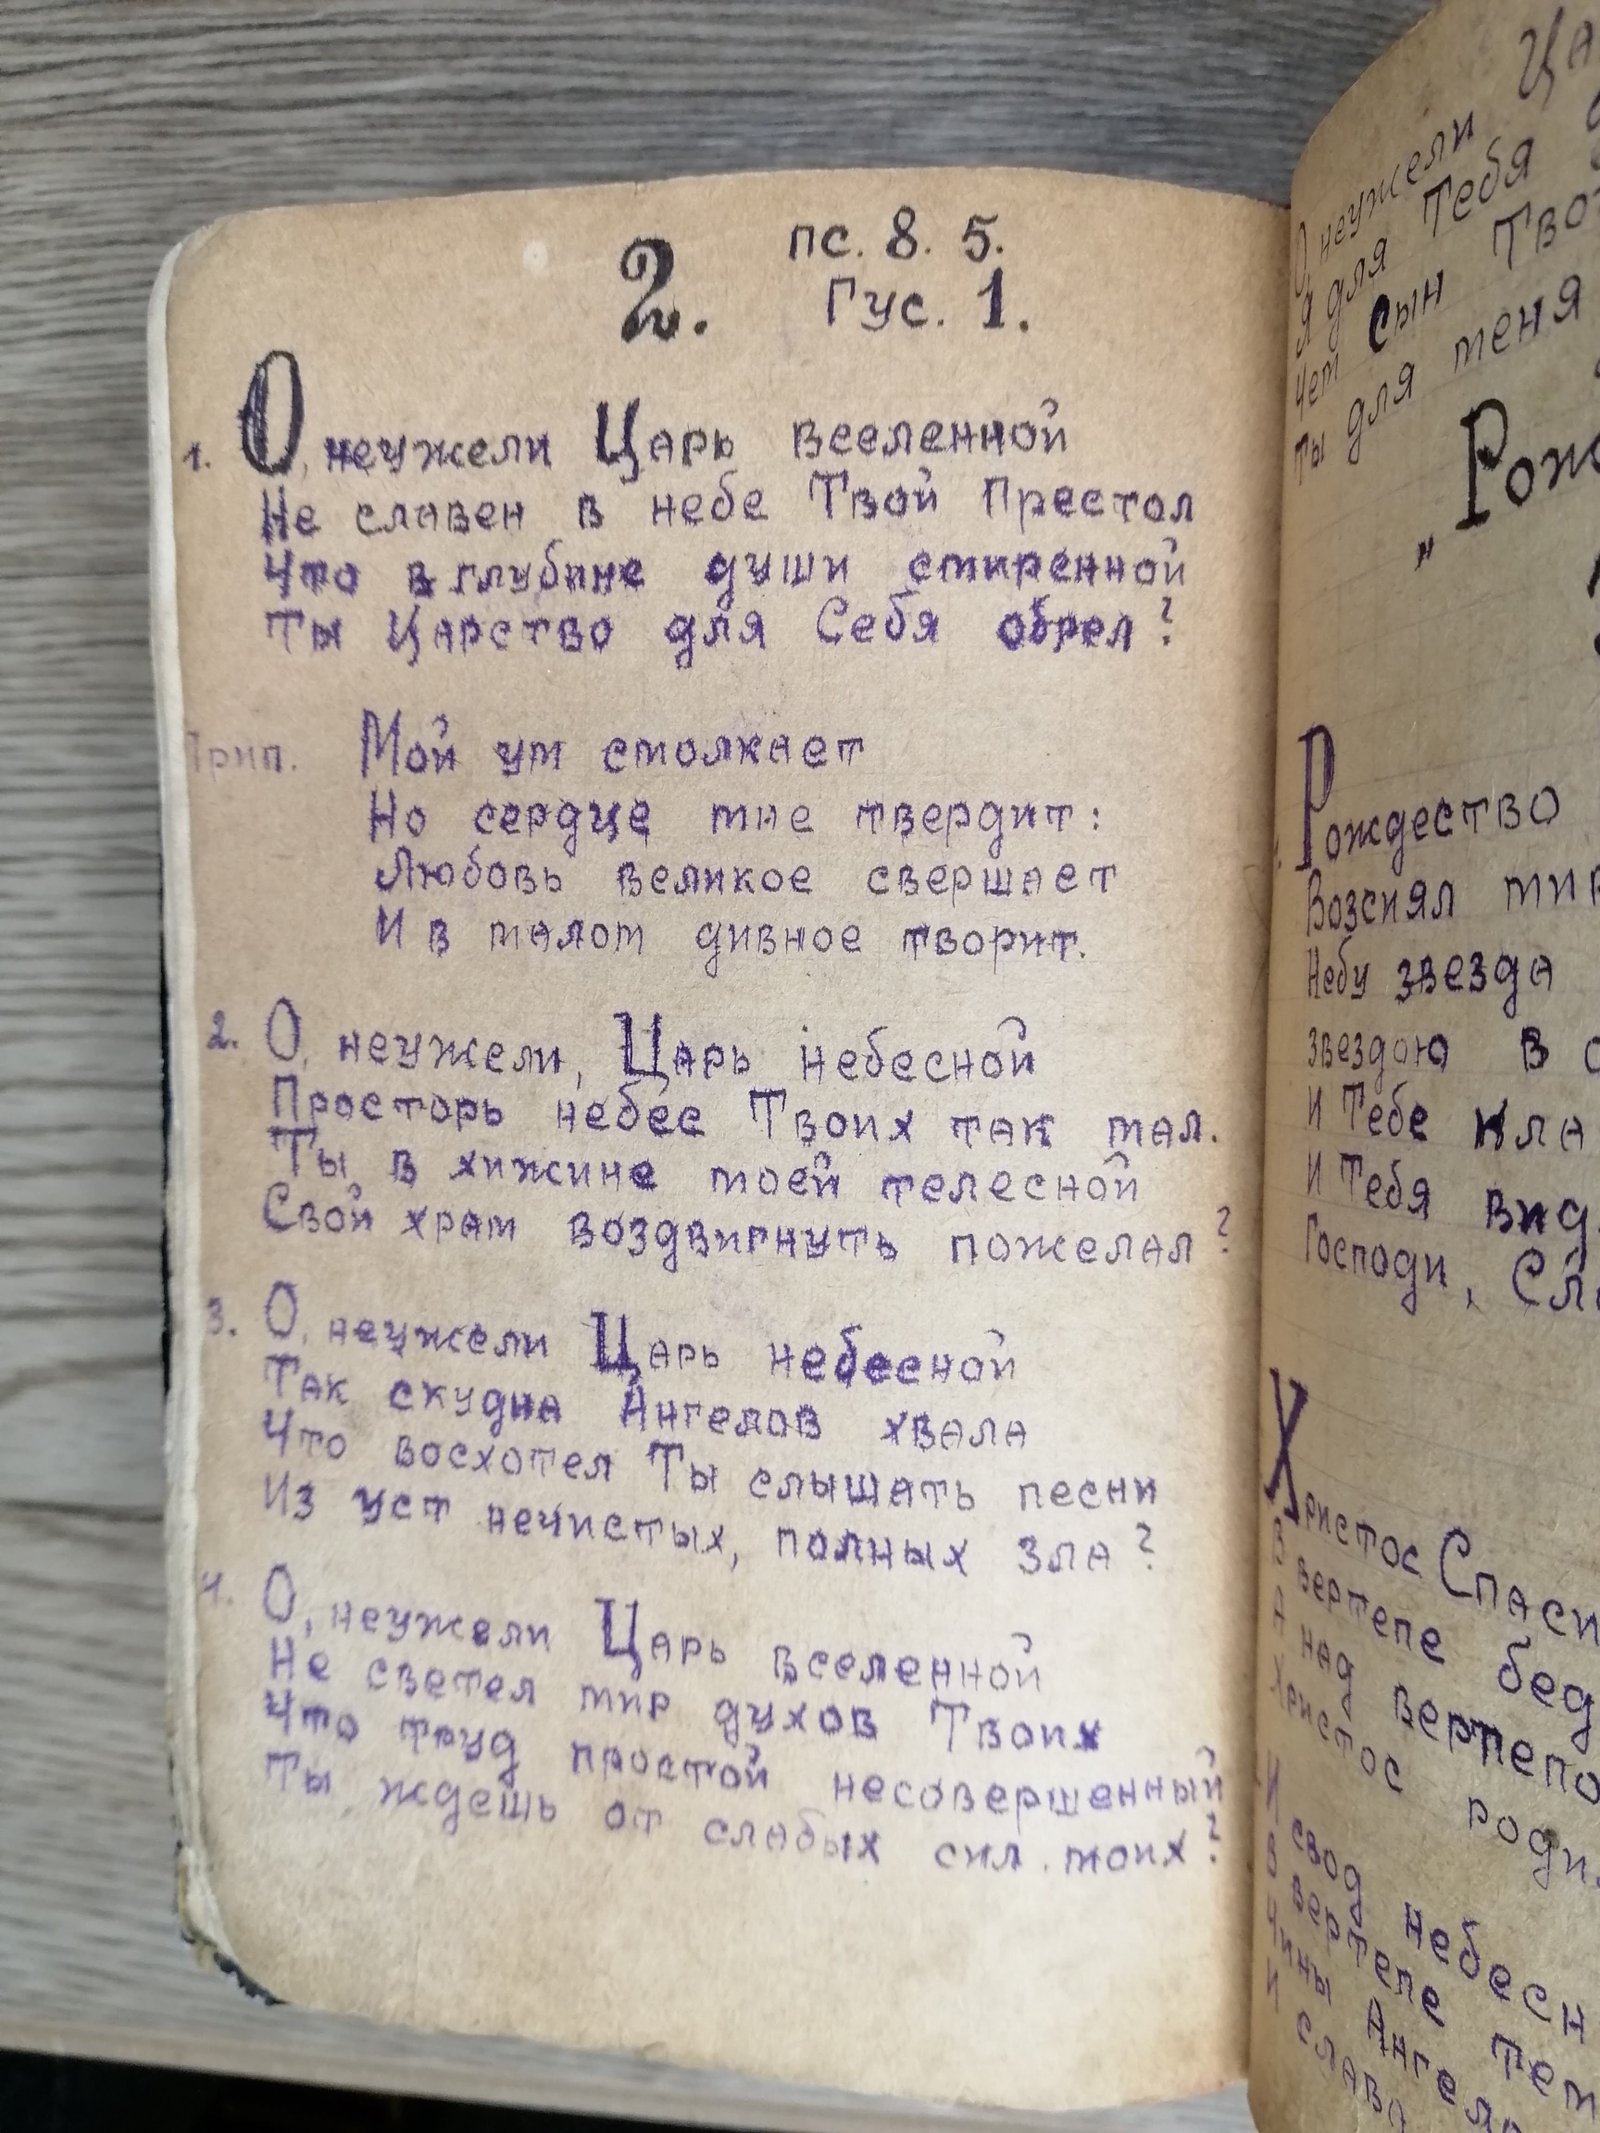 2.
пс. 8. 5.
Гус. 1.
1. О, неужели Царь вселенной
Не славен в небе Твой Престол
Что в глубине души смиренной
Ты Царство для Себя обрел?
Прип. Мой ум смолкает
Но сердце мне твердит:
Любовь великое свершает
И в малом дивное творит.
2. О, неужели, Царь небесной
Просторь небес Твоих так мал.
Ты в хижине моей телесной
Свой храм воздвигнуть пожелал?
3. О, неужели Царь небесной
Так скудна Ангелов хвала
Что восхотел Ты слышать песни
Из уст нечистых, полных зла?
4. О, неужели Царь вселенной
Не светел мир духов Твоих
Что труд простой несовершенный
Ты ждешь от слабых сил моих?
О, неужели
Я для Тебя
Чем Сын
Ты для меня
„Рож
Рождество
Возсиял мир
Небу звезда
звездою в
И Тебе кла
И Тебя вид
Господи, Сла
Христос Спаси
В вертепе бед
А над вертепо
Христос роди
И свод небесн
В вертепе тем
Чины Ангело
И слава